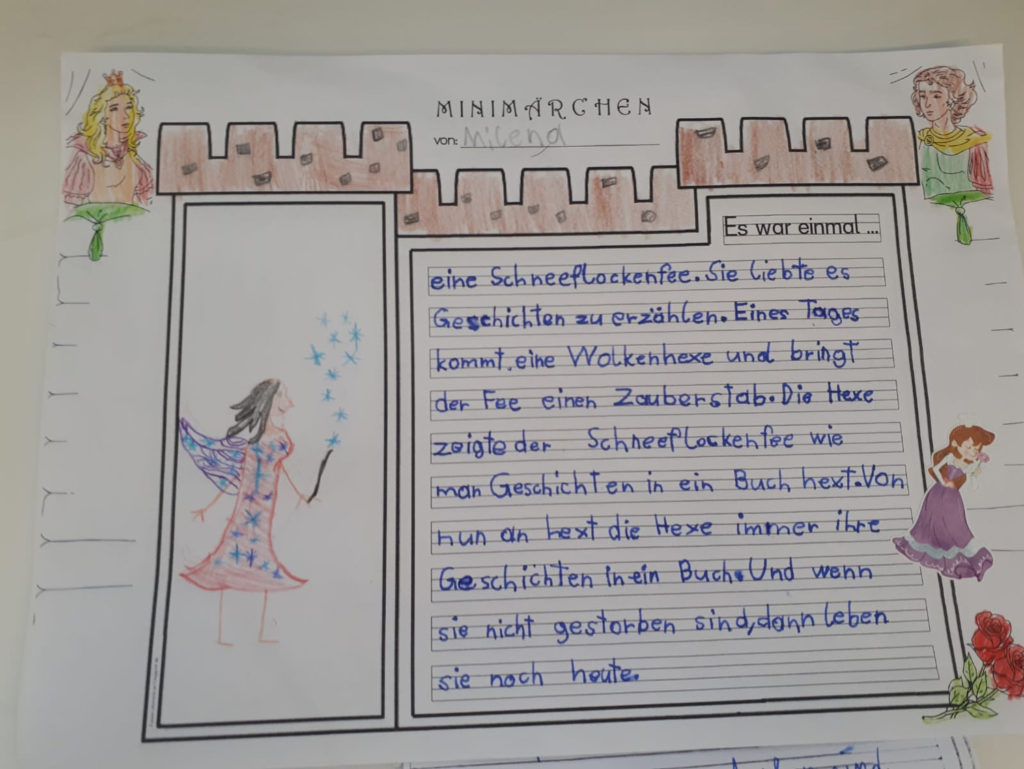 MINIMÄRCHEN
von: Milena
Es war einmal ...
eine Schneeflockenfee. Sie liebte es
Geschichten zu erzählen. Eines Tages
kommt eine Wolkenhexe und bringt
der Fee einen Zauberstab. Die Hexe
zeigte der Schneeflockenfee wie
man Geschichten in ein Buch hext. Von
nun an hext die Hexe immer ihre
Geschichten in ein Buch. Und wenn
sie nicht gestorben sind, dann leben
sie noch heute.